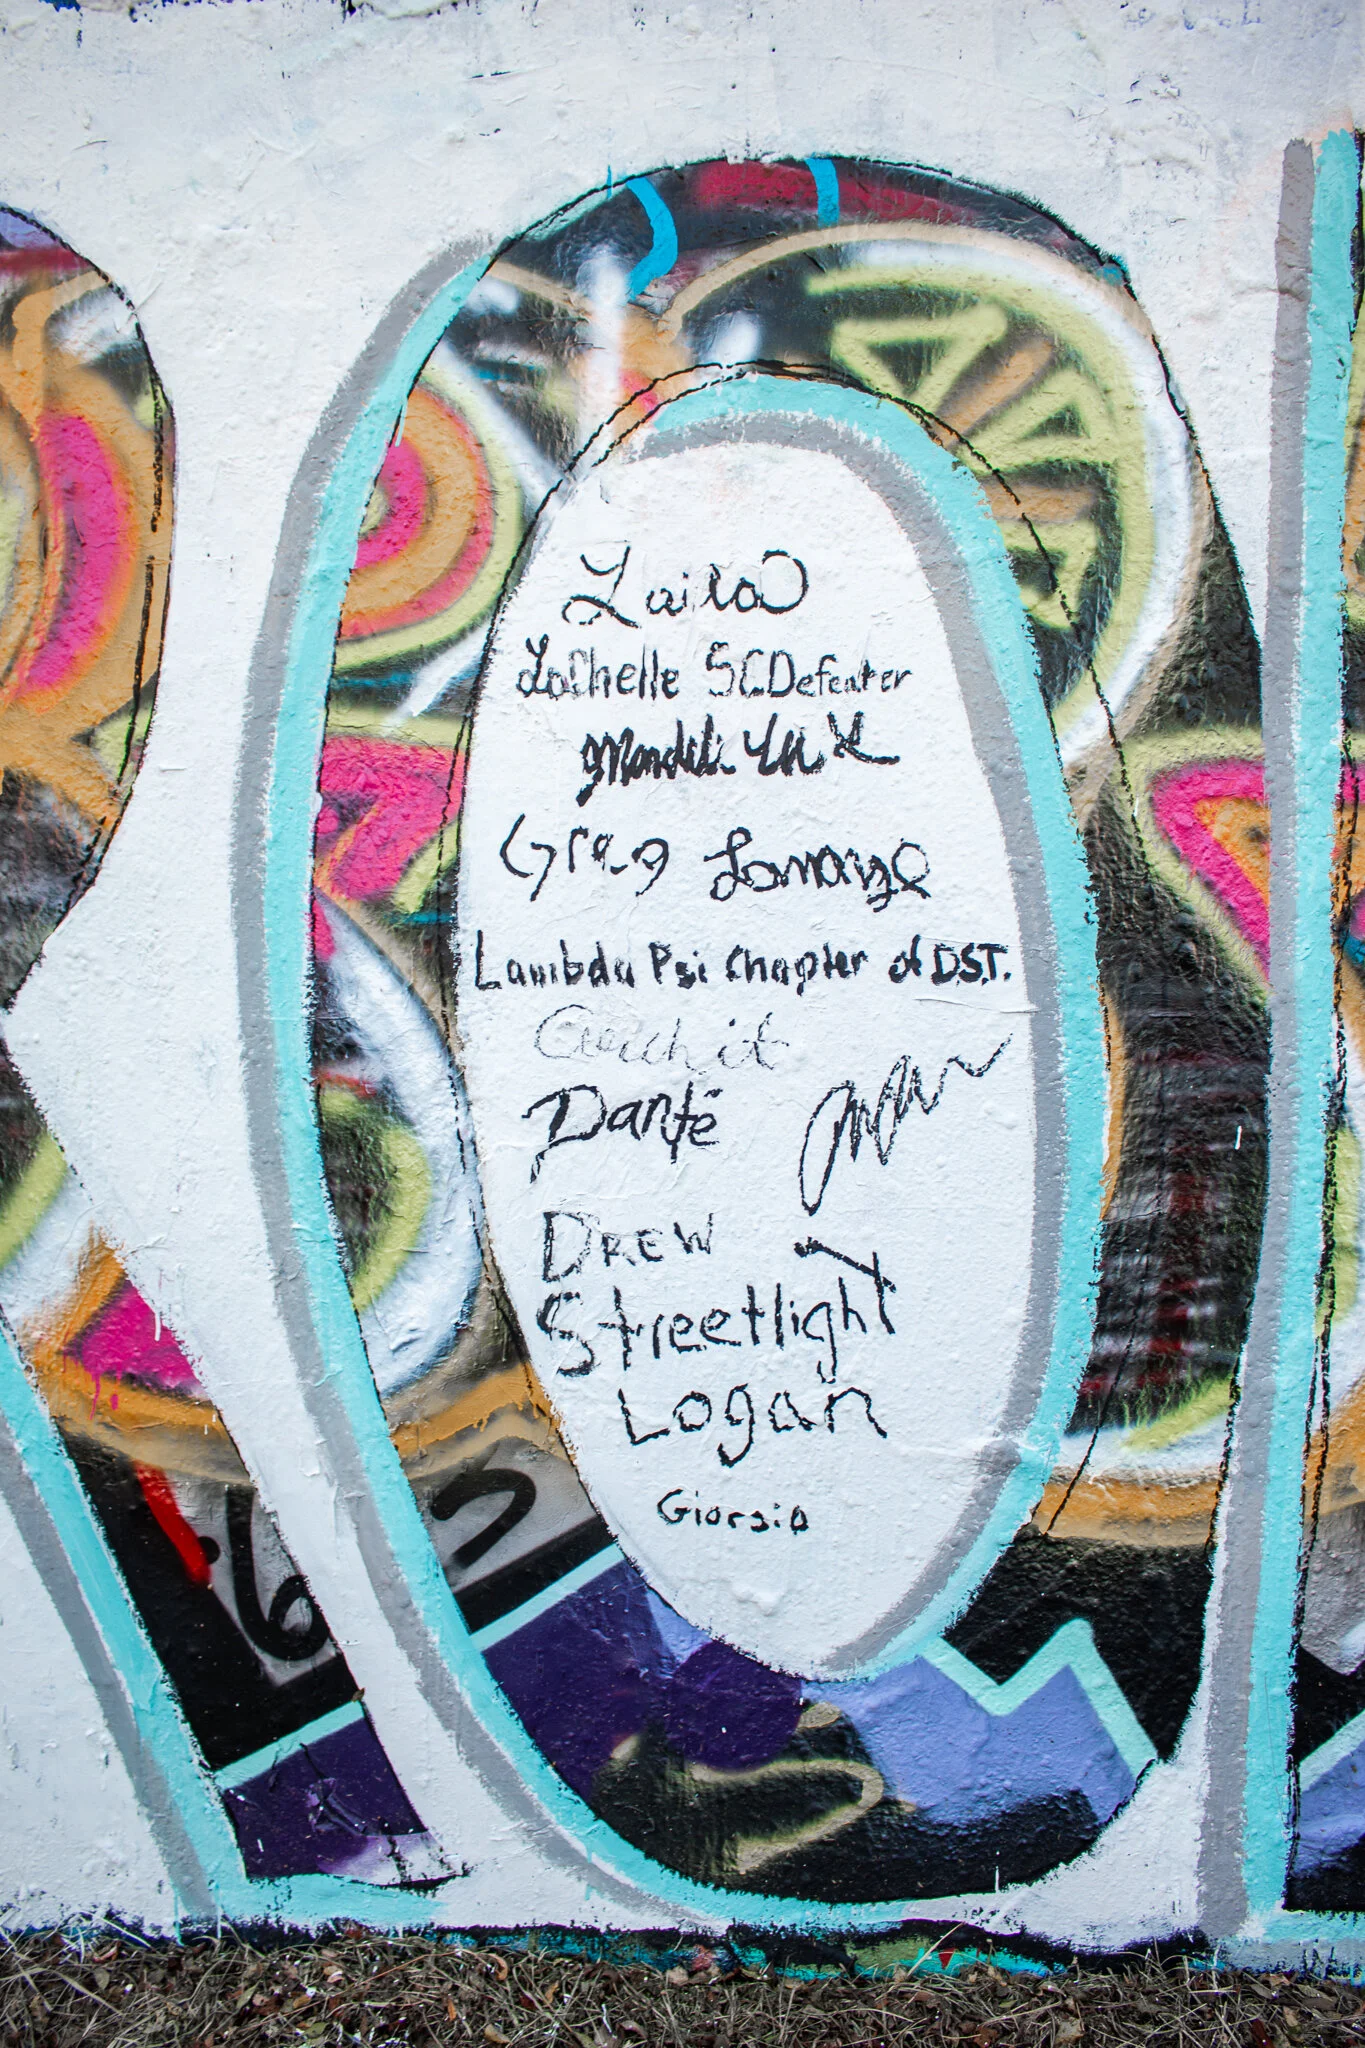 Laila
LaChelle SCDefeater
Greg Lamayze
Lambda Psi Chapter of D.S.T.
Danté
DREW
Streetlight
Logan
Giorgio